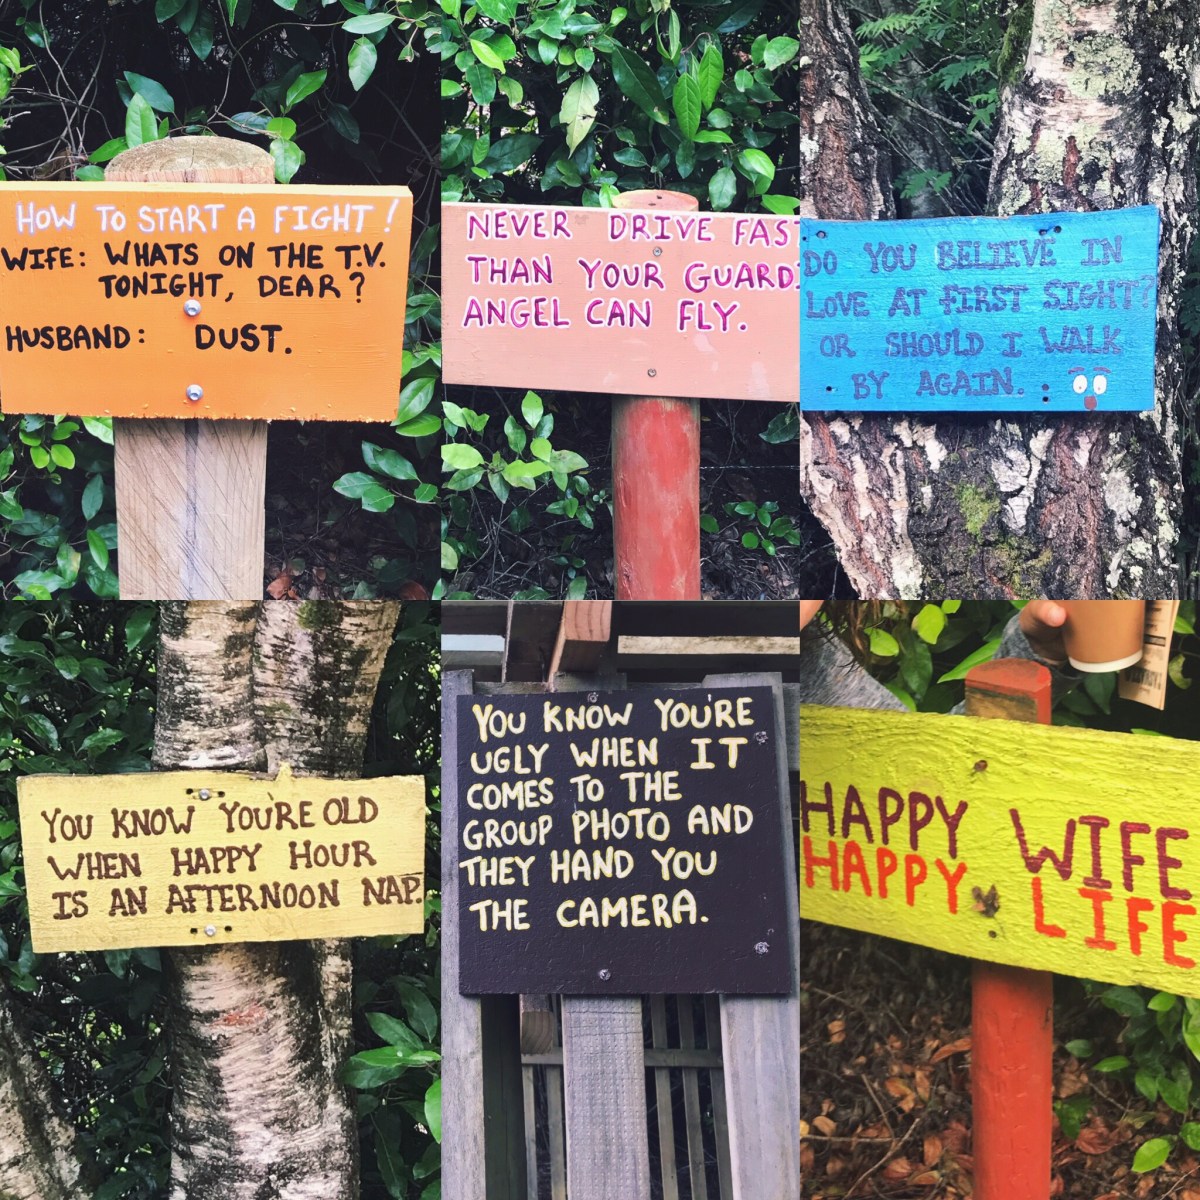 HOW TO START A FIGHT!
WIFE: WHATS ON THE T.V.
TONIGHT, DEAR?
HUSBAND: DUST.
NEVER DRIVE FAST
THAN YOUR GUARDI
ANGEL CAN FLY.
DO YOU BELIEVE IN
LOVE AT FIRST SIGHT?
OR SHOULD I WALK
BY AGAIN..
YOU KNOW YOU'RE OLD
WHEN HAPPY HOUR
IS AN AFTERNOON NAP.
YOU KNOW YOU'RE
UGLY WHEN IT
COMES TO THE
GROUP PHOTO AND
THEY HAND YOU
THE CAMERA.
HAPPY WIFE
HAPPY LIFE